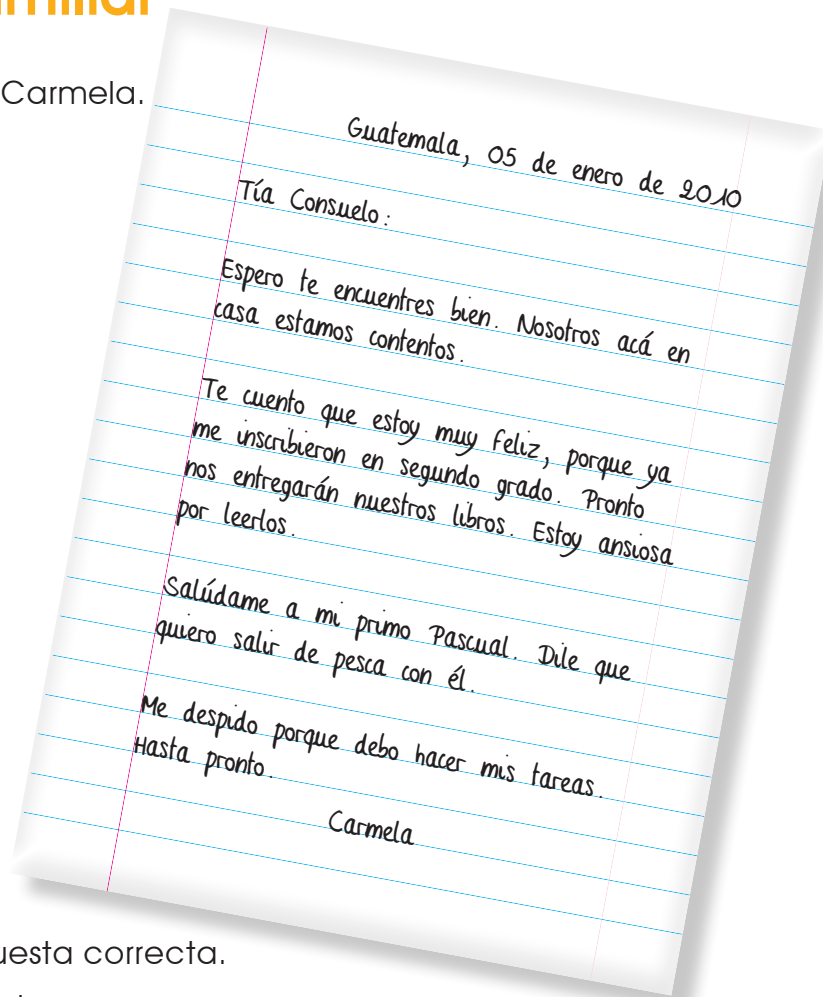 Carmela.
Guatemala, 05 de enero de 2010
Tía Consuelo:
Espero te encuentres bien. Nosotros acá en
casa estamos contentos.
Te cuento que estoy muy feliz, porque ya
me inscribieron en segundo grado. Pronto
nos entregarán nuestros libros. Estoy ansiosa
por leerlos.
Salúdame a mi primo Pascual. Dile que
quiero salir de pesca con él.
Me despido porque debo hacer mis tareas.
Hasta pronto.
Carmela
uesta correcta.